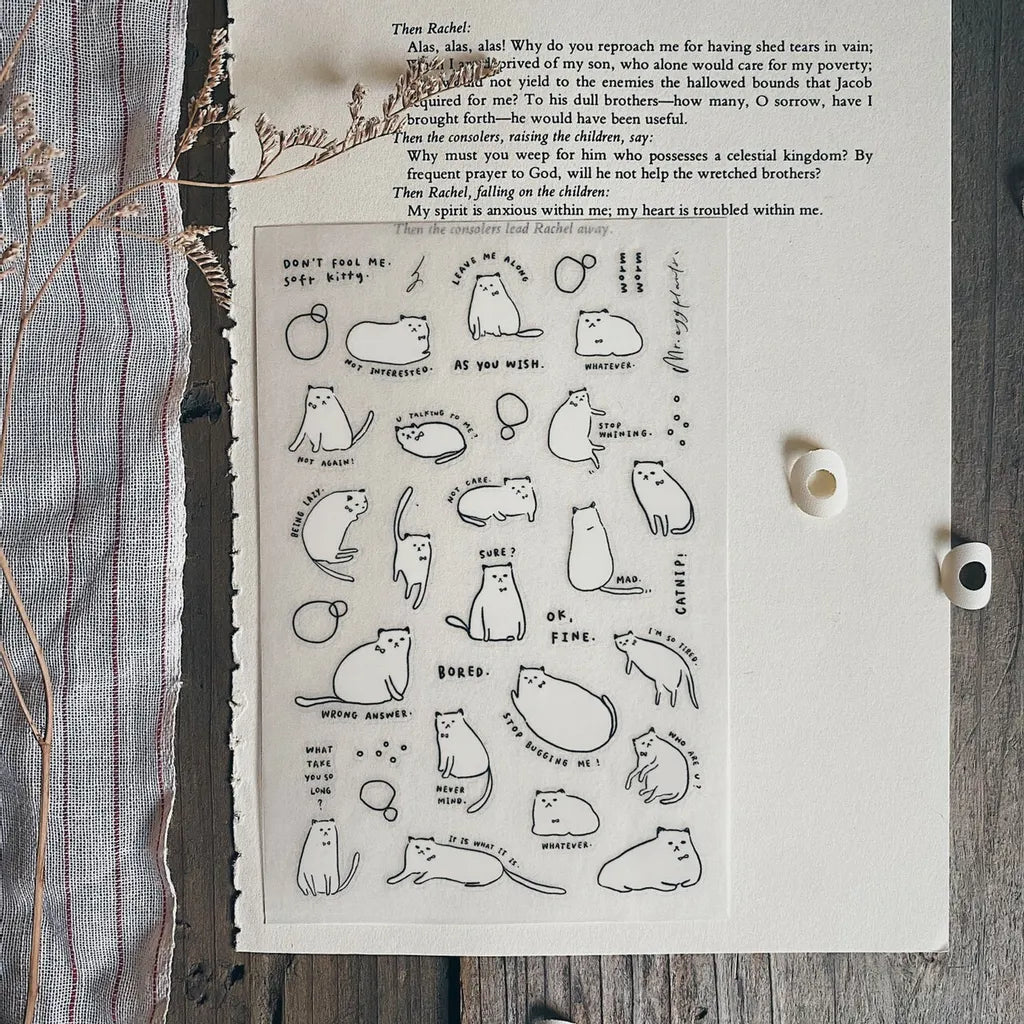 Then Rachel:
Alas, alas, alas! Why do you reproach me for having shed tears in vain;
I prived of my son, who alone would care for my poverty;
not yield to the enemies the hallowed bounds that Jacob
quired for me? To his dull brothers—how many, O sorrow, have I
brought forth—he would have been useful.
Then the consolers, raising the children, say:
Why must you weep for him who possesses a celestial kingdom? By
frequent prayer to God, will he not help the wretched brothers?
Then Rachel, falling on the children:
My spirit is anxious within me; my heart is troubled within me.
Then the consolers lead Rachel away.
DON'T FOOL ME.
soft kitty.
LEAVE ME ALONG
MEOW
MEOW
Mr. eggplant.
NOT INTERESTED.
AS YOU WISH.
WHATEVER.
NOT AGAIN!
U TALKING TO ME?
STOP
WHINING.
BEING LAZY.
NOT CARE.
SURE?
MAD.
CATNIP!
OK,
FINE.
I'M SO TIRED.
WRONG ANSWER.
BORED.
STOP BUGGING ME!
WHO ARE U?
WHAT
TAKE
YOU SO
LONG
?
NEVER
MIND.
WHATEVER.
IT IS WHAT IT IS.